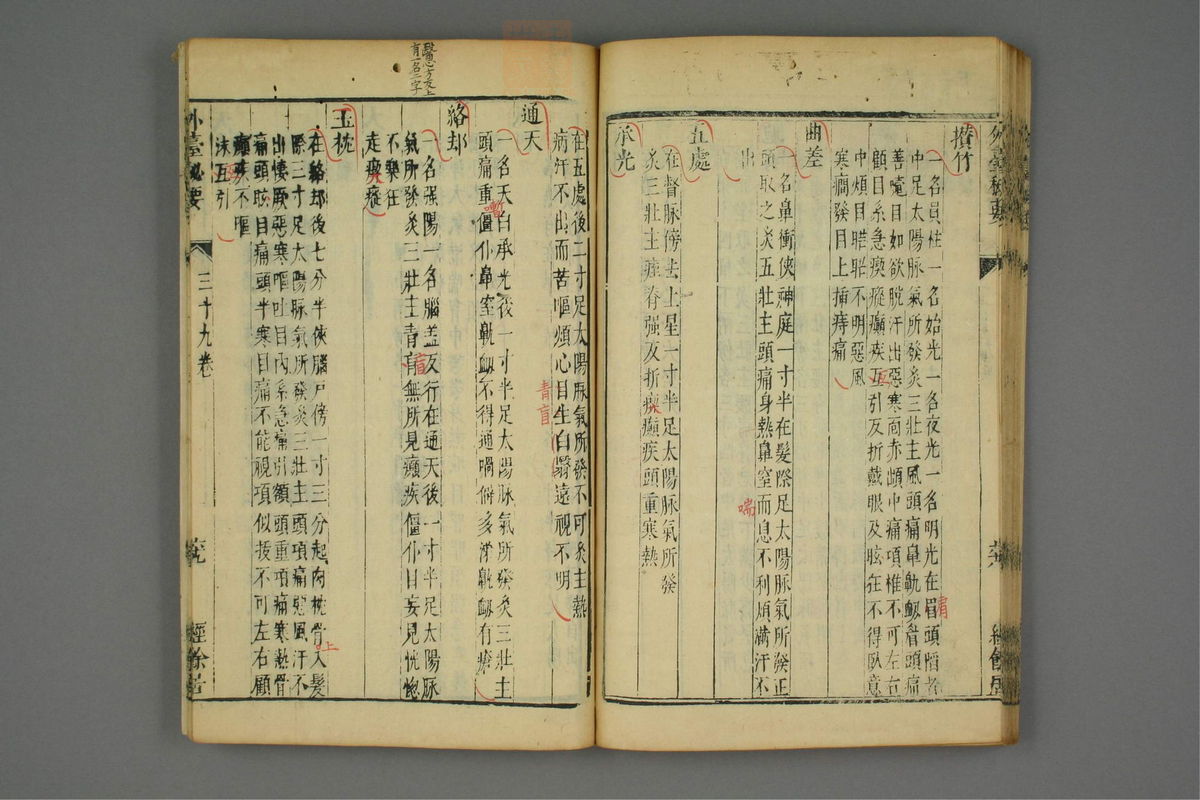 外臺秘要
攅竹
一名員柱一名始光一名夜光一名明光在眉頭陷者
中足太陽脉氣所發灸三壯主風頭痛鼻鼽衂眉頭痛
善嚏目如欲脫汗出惡寒面赤䪼中痛項椎不可左右
顧目系急瘈瘲癲疾互引反折戴眼及眩狂不得臥意
中煩目䀮䀮不明惡風
寒癇發目上揷痔痛
曲差
一名鼻衝俠神庭一寸半在髮際足太陽脉氣所發正
頭取之灸五壯主頭痛身熱鼻窒而息不利煩滿汗不
出
喘
五處
在督脉傍去上星一寸半足太陽脉氣所發
灸三壯主痓脊强反折瘈癲疾頭重寒熱
承光
在五處後二寸足太陽脉氣所發不可灸主熱
病汗不出而苦嘔煩心目生白翳遠視不明
青盲
通天
一名天白承光後一寸半足太陽脉氣所發灸三壯主
頭痛重僵仆鼻窒鼽衂不得通喎僻多涕鼽衂有瘡
絡却
醫心方反上
有一名二字
一名强陽一名腦盖反行在通天後一寸半足太陽脉
氣所發灸三壯主青盲無所見癲疾僵仆目妄見恍惚
不樂狂
走瘈瘲
玉枕
在絡却後七分半俠腦戶傍一寸三分起肉枕骨入髮
際三寸足太陽脉氣所發灸三壯主頭項痛惡風汗不
出悽厥惡寒嘔吐目內系急痛引頞頭重項痛寒熱骨
痛頭眩目痛頭半寒目痛不能視項似拔不可左右顧
癲疾不嘔
沫互引
上
外臺秘要 三十九卷 經餘居